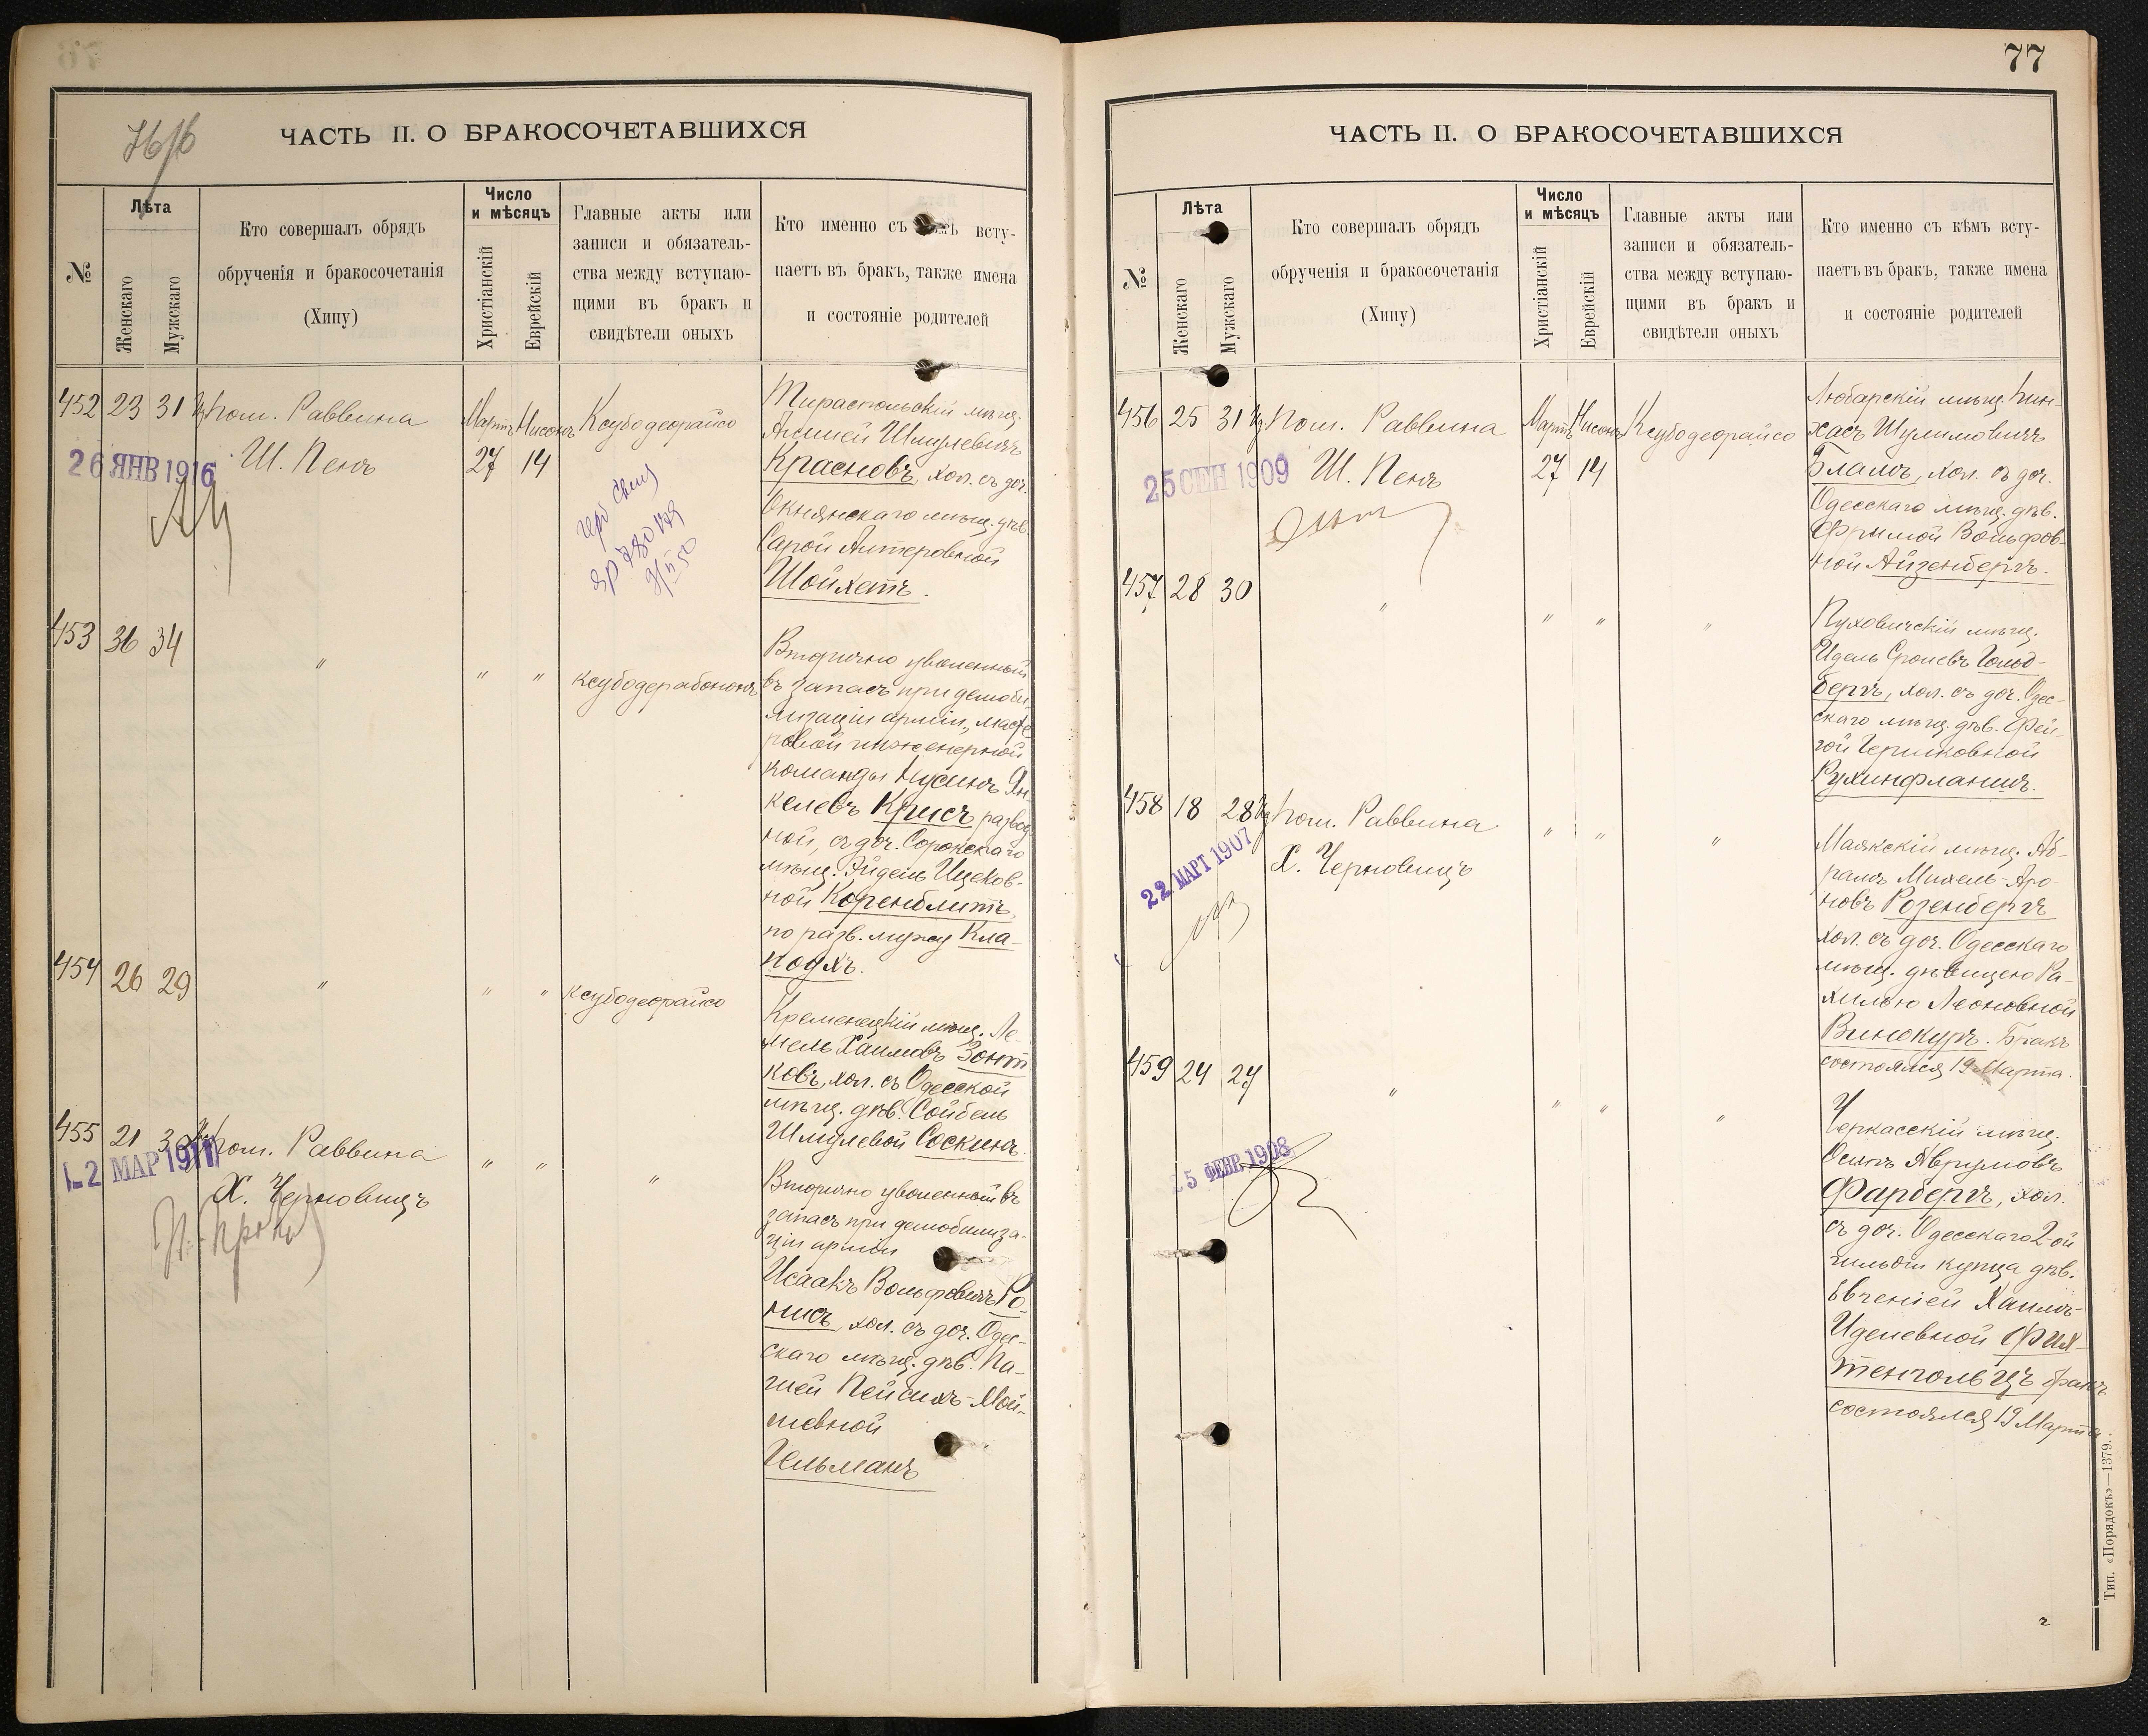 77
76/6
ЧАСТЬ II. О БРАКОСОЧЕТАВШИХСЯ
№
Лѣта
Женскаго
Мужскаго
Кто совершалъ обрядъ
обрученія и бракосочетанія
(Хипу)
Число
и мѣсяцъ
Христіанскій
Еврейскій
Главные акты или
записи и обязатель-
ства между вступаю-
щими въ бракъ и
свидѣтели оныхъ
Кто именно съ всту-
паетъ въ бракъ, также имена
и состояніе родителей
452 23 31 Пом. Раввина
Ш. Пенъ
Мартъ Нисонъ
27 14
Ксубодеорайсо
26 ЯНВ 1916
Тираспольскій мѣщ.
Шмулевичъ
Красновъ, хол. съ доч.
Окнянскаго мѣщ. дѣв.
Сарой Алтеровной
Шойхетъ.
453 36 34 " " "
ксубодерабононъ
Вторично уволенный
въ запасъ при демоби-
лизаціи арміи, масте-
ровой инженерной
команды Нусинъ Ян-
келевъ Крисъ развед-
ной, съ доч. Сорокскаго
мѣщ. Эйдель Ицков-
ной Коренблитъ,
по разв. мужу Кла-
454 26 29 " " "
ксубодеорайсо
Кременецкій мѣщ. Ле-
мель Хаимовъ Зонт
ковъ, хол. съ Одесской
мѣщ. дѣв. Сойбель
Шмулевой Соскинъ.
455 21 30 Пом. Раввина
Х. Черновицъ
" " "
12 МАР 1911
Вторично уволенный въ
запасъ при демобилиза-
ціи арміи
Исаакъ Вольфовичъ Ро-
нисъ, хол. съ доч. Одес-
скаго мѣщ. дѣв. По-
Пейсихъ-Мой-
шевной
Гельманъ
ЧАСТЬ II. О БРАКОСОЧЕТАВШИХСЯ
№
Лѣта
Женскаго
Мужскаго
Кто совершалъ обрядъ
обрученія и бракосочетанія
(Хипу)
Число
и мѣсяцъ
Христіанскій
Еврейскій
Главные акты или
записи и обязатель-
ства между вступаю-
щими въ бракъ и
свидѣтели оныхъ
Кто именно съ кѣмъ всту-
паетъ въ бракъ, также имена
и состояніе родителей
456 25 31 Пом. Раввина
Ш. Пенъ
Мартъ Нисонъ
27 14
Ксубодеорайсо
25 СЕН 1909
Любарскій мѣщ. Пин-
хасъ Шулимовичъ
Бламъ, хол. съ доч.
Одесскаго мѣщ. дѣв.
Фримой Вольфов-
ной Айзенбергъ.
457 28 30 " " " "
Пуховичскій мѣщ.
Идель Сролевъ Гольд-
бергъ, хол. съ доч. Одес-
скаго мѣщ. дѣв. Фей-
гой Гершковной
Рухинфланшъ.
458 18 28 Пом. Раввина
Х. Черновицъ
" " "
22 МАРТ 1907
Маякскій мѣщ. Аб-
рамъ Михель-Аро-
новъ Розенбергъ
хол. съ доч. Одесскаго
мѣщ. дѣвицею Ра-
хилью Леоновной
Винокуръ. Бракъ
состоялся 19 Марта.
459 24 27 " " " "
15 ФЕВР. 1908
Черкасскій мѣщ.
Осипъ Аврумовъ
Фарбергъ, хол.
съ доч. Одесскаго 2-ой
гильдіи купца дѣв.
Евгеніей Хаимъ-
Иделевной Фих-
тенгольцъ бракъ
состоялся 19 Марта
Тип. «Порядокъ»—1379.